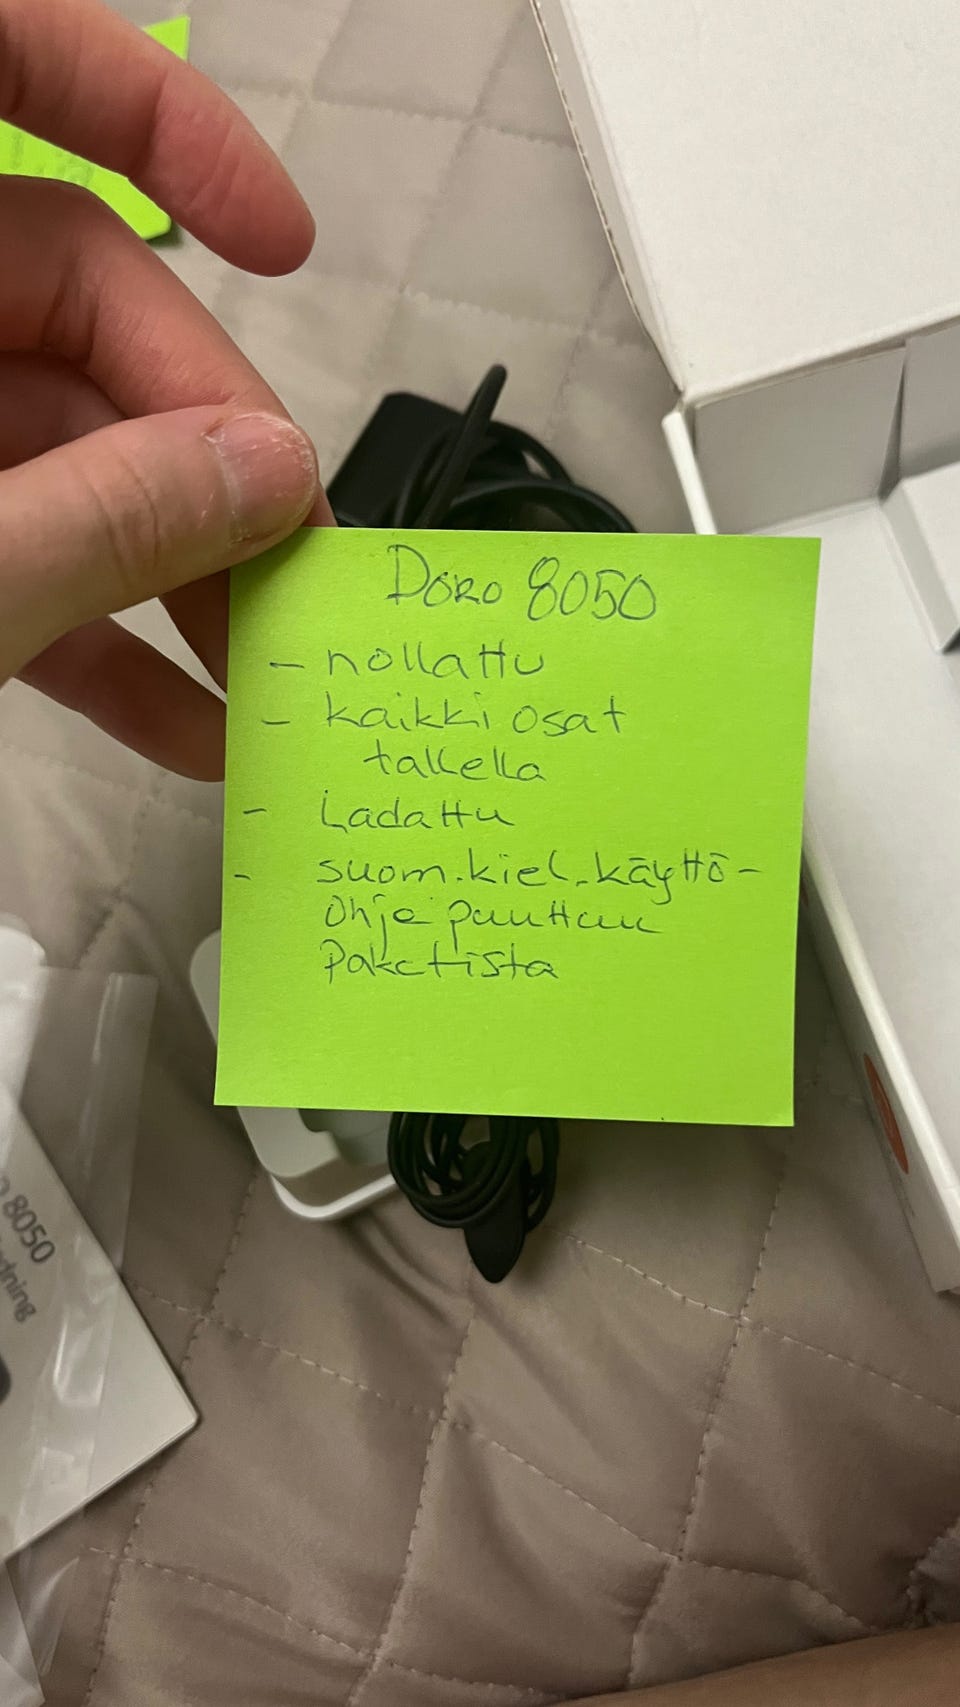 Doro 8050
- nollattu
- kaikki osat
tallella
- Ladattu
- suom.kiel.käyttö-
ohje puuttuu
Paketista
8050